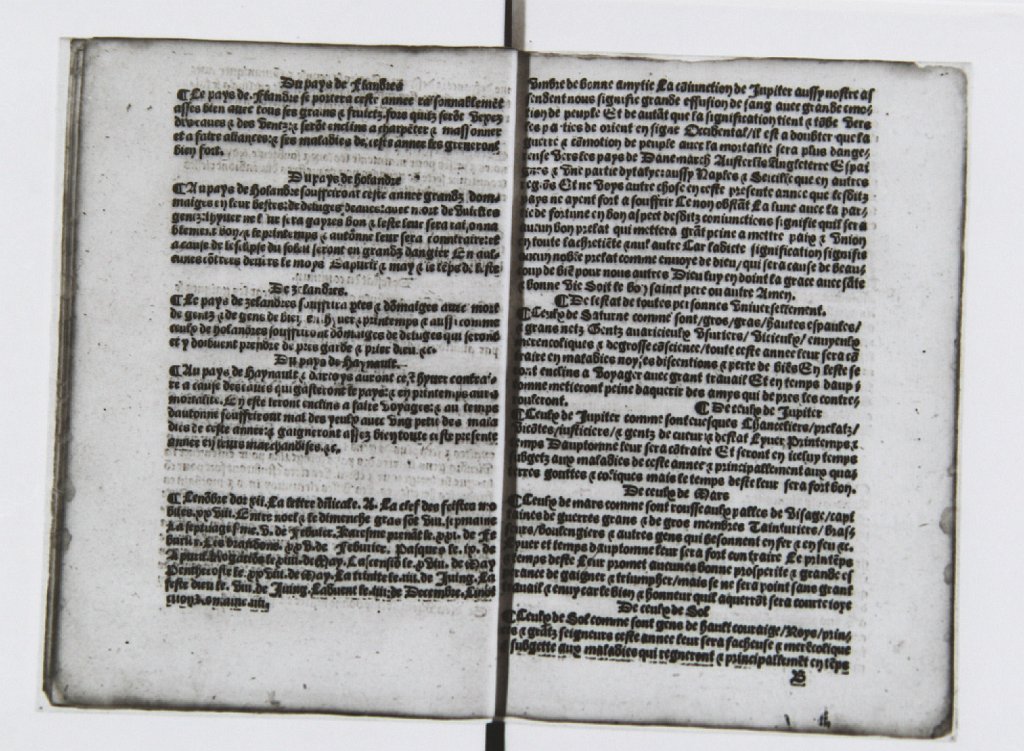 Du pays de Flandres
¶Le pays de Flandre se portera ceste annee raisonnablemēt
asses bien auec tous ses grains & fruictz, fors quilz serōt
des eaues & des ventz: & serōt enclins a charpēter & massonner
et a faire aliances: & ses maladies de ceste annee les greueront
bien fort.
Du pays de Holandre
¶Au pays de Holandre souffreront ceste annee grandz dom-
maiges en leur bestes: de deluges deaue: auec mort de
gentz: lhyuer ne leur sera gayres bon & leste leur sera raisonna
blement bon/& le printemps & autōne leur sera contraire: et
a cause de leclipse du soleil seront en grandz dangier En aul-
cunes cōtrees deuers le moys Dapuril & may & le tēps de leste
De zelandres.
¶Le pays de zelandres souffrira ptes & dōmaiges auec mort
de gentz & de gens de bien en lhyuer & printemps & aussi comme
ceulx de Holandres souffreront dōmaiges de deluges qui seront
et y doibuent prendre de pres garde & prier dieu. &c.
Du pays de Haynault.
¶Au pays de Haynault & dartoys auront cest hyuer contrai-
re a cause des eaues qui gasteront le pays: & en printemps auront
mortalite. En este seront enclins a faire voyages: & au temps
dautonne souffriront mal des yeulx auec vng petit des mala
dies de ceste annee: & gaigneront assez bien toute ceste presente
annee en leurs marchandises. &c.
¶Lenōbre dor xii. La lettre dñicale. A. La clef des festes mo
biles. xxviii. Entre noel & le dimenche gras sōt viii. sepmaine
La septuagesime. v. de Feburier. Karesme prenāt le. xxi. de Fe
burier. Les brandons. xxvi. de Feburier. Pasques le. ix. de
Apuril. Rogations le xiiii. de May. Lascensiō le. xviii. de May
Penthecoste le. xxviii. de May. La trinite le. iiii. de Juing. La
feste dieu le. viii. de Juing. Laduent le. iii. de Decembre.
timbre de bonne amytie La cōiunction de Jupiter aussy nostre as
sendent nous signifie grande effusion de sang auec grande emo-
tion de peuple Et de autāt que la signification tient & tōbe vers
les parties de orient en signe Occidental/il est a doubter que la
guerre & cōmotion de peuple auec la mortalite sera plus dange-
reuse vers les pays de Danemarch Austeriis Angleterre Espai
gnes & vne partie dytalye: aussy Naples & Seicille que en autres
regiōs Et ne voys autre chose en ceste presente annee que lesditz
pays ne ayent fort a souffrir Ce non obstāt La lune auec la par-
tie de fortune en bon aspect desditz coniunctions signifie quil sera
aucun bon prelat qui mettera grāt peine a mettre paix & vnion
en toute la chretiēte & nul autre Car ladicte signification signifie
aucun noble prelat comme enuoye de dieu/qui sera cause de beau-
coup de biē pour nous autres Dieu luy en doint la grace auec sāte
& bonne vie Soit le bon sainct pere ou autre Amen.
¶De lestat de toutes personnes vniuersellement.
¶Ceulx de Saturne comme sont/gros/gras/haultes espaules/
& grans netz Gentz auaricieulx vsuriers/vicieulx/enuyeulx
merencoliques & de grosse cōscience/toute ceste annee leur sera cō
traire en maladies noyses discentions & perte de biēs En leste se
ront enclins a voyager auec grant trauail Et en temps daup
tomne metteront peine daquerir des amys qui de pres les contre-
uouleront.
¶De ceulx de Jupiter
¶Ceulx de Jupiter comme sont euesques Chanceliers/prelatz/
vicōtes/iusticiers/& gentz de cueur & destat Lyuer Printemps &
temps Dauptomne leur sera cōtraire Et seront en iceluy temps
subgetz aux maladies de ceste annee & principallement aux quar
terres gouttes & coliques mais le temps deste leur sera fort bon.
De ceulx de Mars
¶Ceulx de mars comme sont rousseaulx palles de visage/capi
taines de guerres grans & de gros membres Tainturiers/bras-
seurs/boulengiers & autres gens qui besonnent en fer & en feu &c.
Lyuer et temps dauptomne leur sera fort contraire Le printēps
& temps deste Leur promet aucunes bonne prosperite & grande es
perance de gaigner & triumpher/mais se ne sera point sans grant
trauail & enuy car le bien & honneur quil aquerrōt sera courte ioye
De ceulx de Sol
¶Ceulx de Sol comme sont gens de hault couraige/Roys/prin-
ces & grātz seigneurs ceste annee leur sera facheuse & merēcolique
subgette aux maladies qui regneront & principallemēt en tēps
B